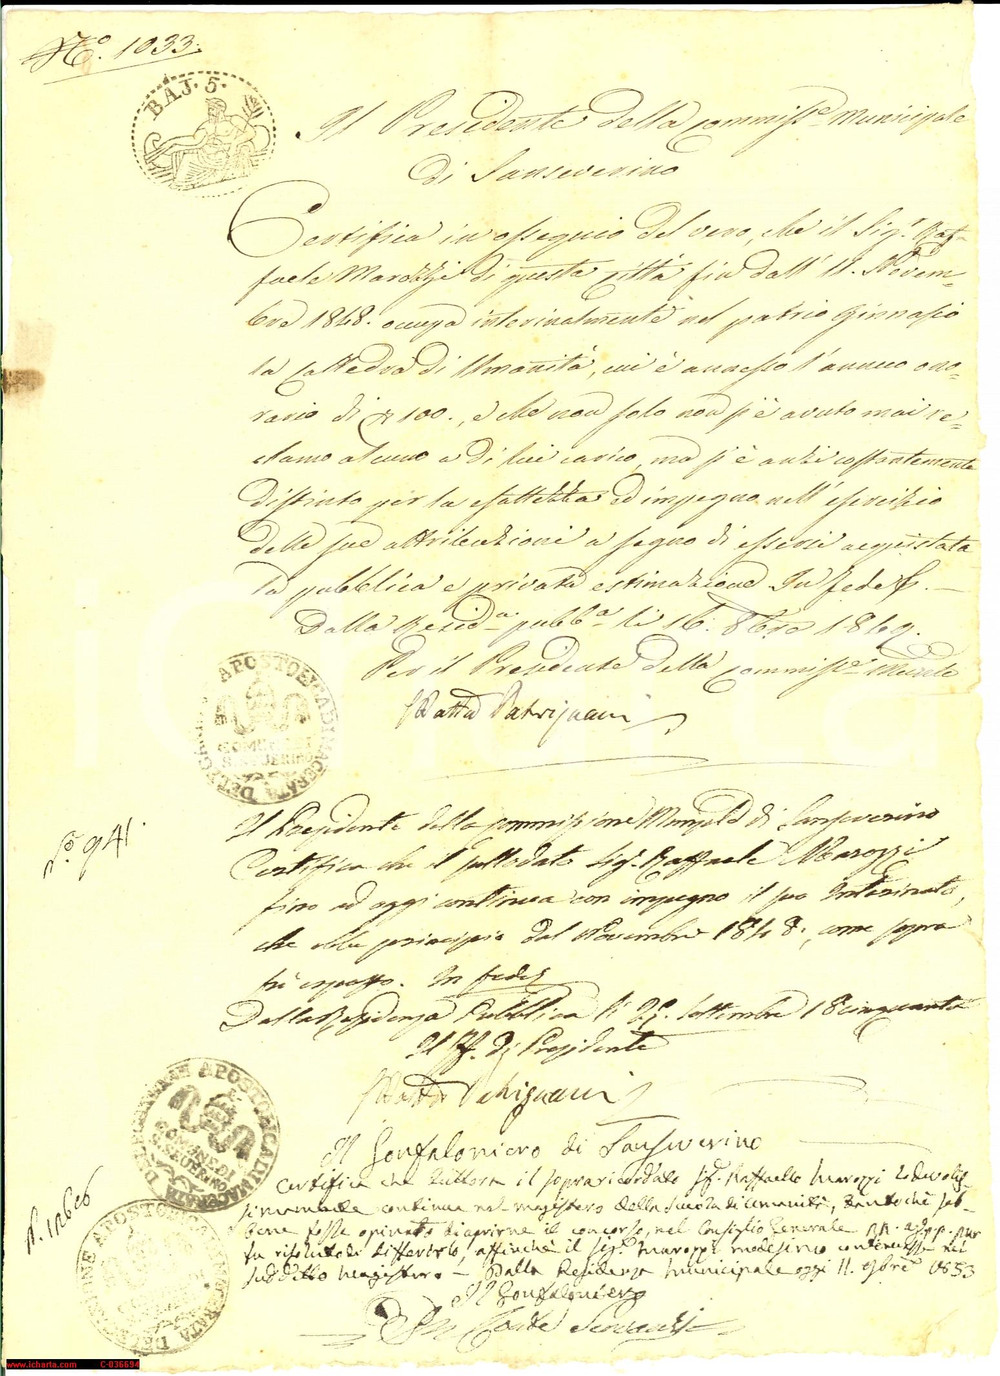 N.º 1033.
BAJ. 5.
Il Presidente della commiss.e Municipale
di Sanseverino
Certifica in ossequio del vero, che il Sig.r Raf-
faele Marozzi di questa città fin dall' 11. Novem-
bre 1848. occupa interinalmente nel patrio Ginnasio
la Cattedra di Umanità, cui è annesso l'annuo ono-
rario di 100., e che non solo non si è avuto mai re-
clamo alcuno a di lui carico, ma si è anzi costantemente
distinto per la esattezza ed impegno nell' esercizio
delle sue attribuzioni a segno di essersi acquistata
la pubblica e privata estimazione In fede
Dalla Resid.a pubb.a li 16. 8bre 1849.
Per il Presidente della Commiss.e Munle
Patrignani
DELEGAZIONE APOSTOLICA DI MACERATA
COMUNE DI
S. SEVERINO
N.º 941.
Il Presidente della commissione Municple di Sanseverino
Certifica che il sullodato Sig.r Raffaele Marozzi
fino ad oggi continua con impegno il suo Interinato,
che ebbe principio dal Novembre 1848., come sopra
fu espresso. In fede
Dalla Residenza Pubblica li Settembre 18cinquanta
Il ff. di Presidente
Patrignani
DELEGAZIONE APOSTOLICA DI MACERATA
COMUNE DI
SANSEVERINO
Il Gonfaloniero di Sanseverino
Certifica che tuttora il sopraricordato Sig.r Raffaello Marozzi lodevolis-
simamente continua nel magistero della Scuola di umanità, tanto che seb-
bene fosse opinato di aprirne il concorso, nel Consiglio Generale
fu risoluto di differirlo, affinchè il Sig.r Marozzi medesimo continuasse nel
suddetto magistero — Dalla Residenza Municipale oggi 11. 9bre 1853
Il Gonfaloniero
Conte
DELEGAZIONE APOSTOLICA DI MACERATA
www.icharta.com C-036694